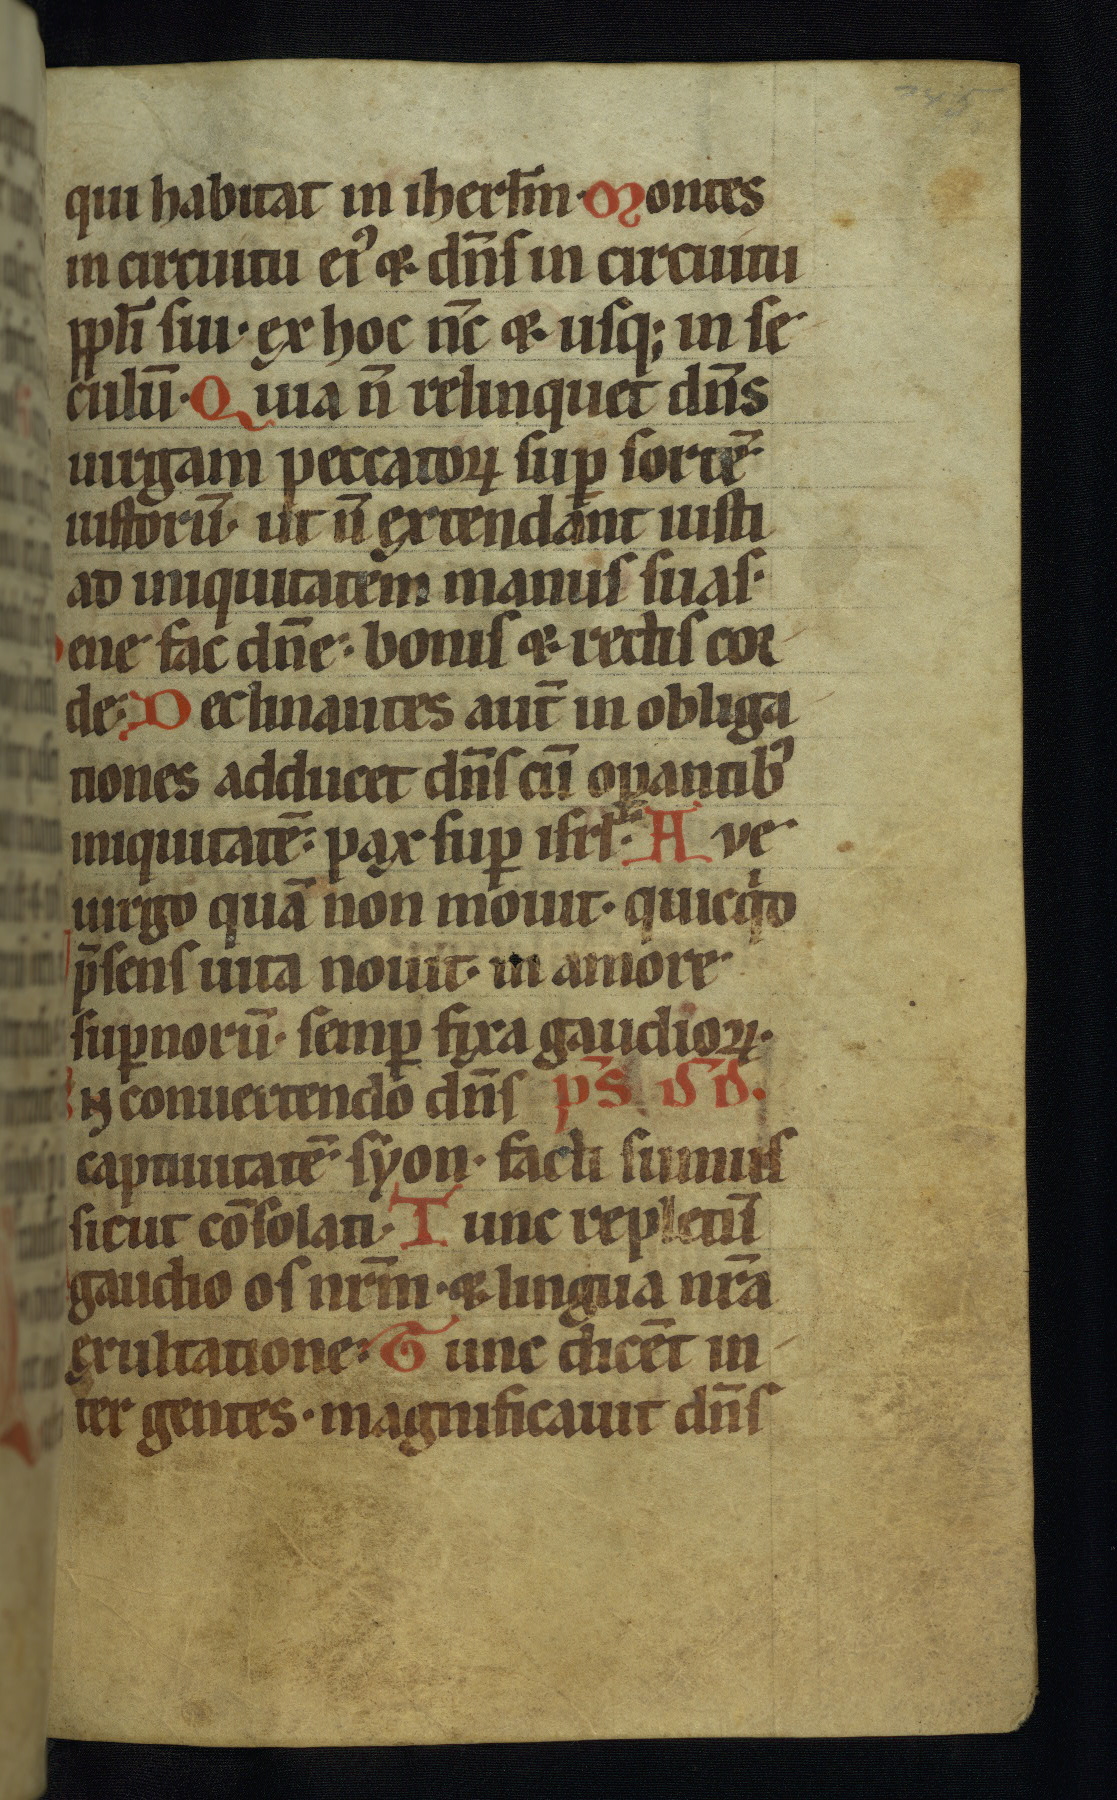 qui habitat in iherl̄m· Montes
in circuitu ei⁹ ⁊ dn̄s in circuitu
ppl̄i sui· ex hoc nc̄ ⁊ usq; in se
culū· Quia n̄ relinquet dn̄s
uirgam peccatoꝝ sup̲ sortē
iustorū· ut n̄ extendant iusti
ad iniquitatem manus suas·
Bene fac dn̄e: bonis ⁊ rectis cor
de: Declinantes aut̄ in obliga
tiones adducet dn̄s cū opantib⁹
iniquitatē: pax sup̲ isrl̄: Ave
uirgo quā non mouit· quicq̇d
p̄sens uita nouit· in amore
sup̲norū· semp̲ fixa gaudioꝝ·
In conuertendo dn̄s ps̄ dd̄.
captiuitatē syon· facti sumus
sicut cōsolati· Tunc repletū
gaudio os nrm̄· ⁊ lingua nrā
exultatione: Tunc dicēt in
ter gentes· magnificauit dn̄s